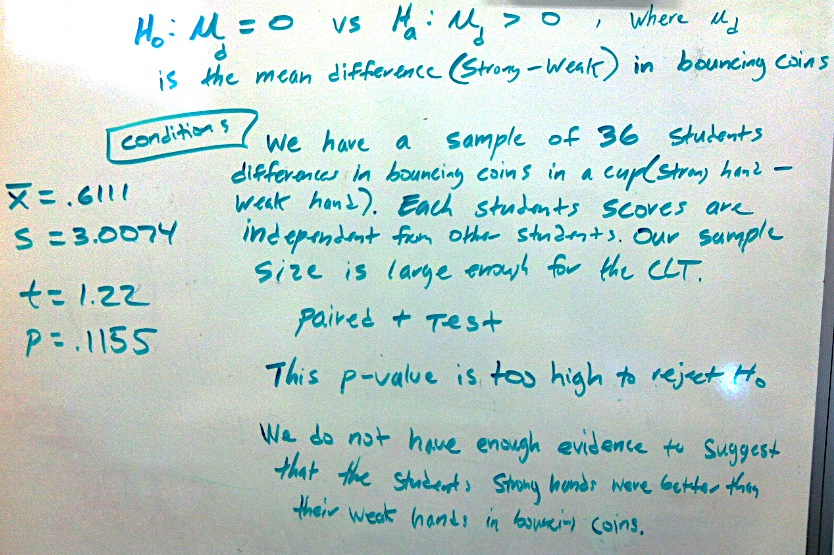 H₀: μ_d = 0 vs Hₐ: μ_d > 0, where μ_d
is the mean difference (Strong - Weak) in bouncing coins
conditions
We have a sample of 36 students
differences in bouncing coins in a cup (strong hand -
weak hand). Each students scores are
independent from other students. Our sample
size is large enough for the CLT.
x̄ = .6111
S = 3.0074
t = 1.22
p = .1155
paired t Test
This p-value is too high to reject H₀
We do not have enough evidence to suggest
that the students strong hands were better than
their weak hands in bouncing coins.